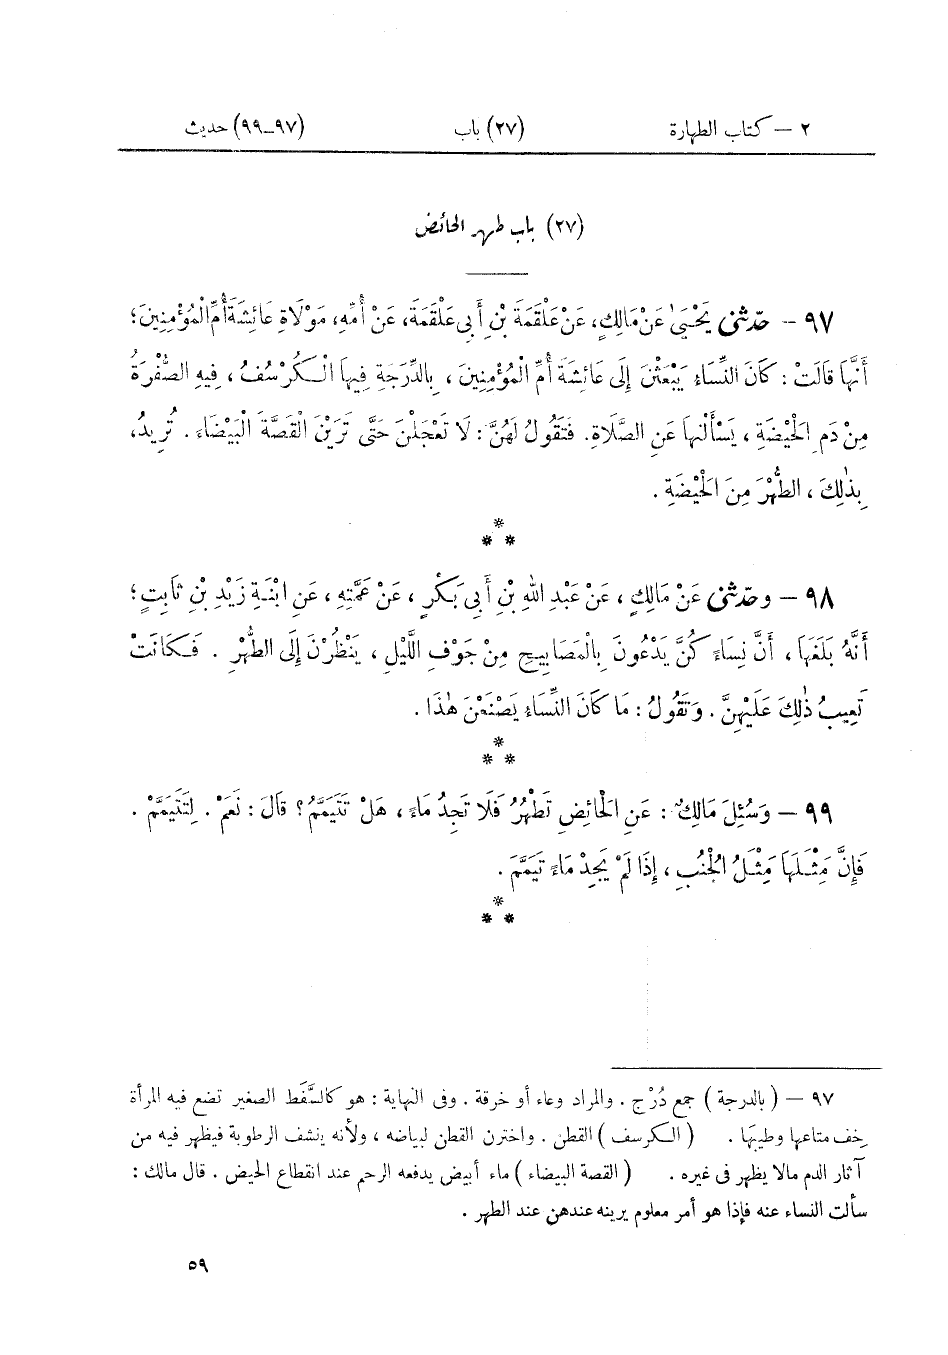 ٢ – كتاب الطهارة (٢٧) باب (٩٧–٩٩) حديث
(٢٧) باب طهر الحائض
٩٧ – حدّثنى يَحْيَىٰ عَنْ مَالِكٍ، عَنْ عَلْقَمَةَ بْنِ أَبِى عَلْقَمَةَ، عَنْ أُمِّهِ، مَوْلَاةِ عَائِشَةَ أُمِّ الْمُؤْمِنِينَ؛
أَنَّهَا قَالَتْ : كَانَ النِّسَاءِ يَبْعَثْنَ إِلَى عَائِشَةَ أُمِّ الْمُؤْمِنِينَ ، بِالدِّرَجَةِ فِيهَا الْكُرْسُفُ ، فِيهِ الصُّفْرَةُ
مِنْ دَمِ الْحَيْضَةِ ، يَسْأَلْنَهَا عَنِ الصَّلَاةِ. فَتَقُولُ لَهُنَّ : لَا تَعْجَلْنَ حَتَّى تَرَيْنَ الْقَصَّةَ الْبَيْضَاءَ . تُرِيدُ،
بِذٰلِكَ ، الطُّهْرَ مِنَ الْحَيْضَةِ .
*
* *
٩٨ – وحدّثنى عَنْ مَالِكٍ ، عَنْ عَبْدِ اللهِ بْنِ أَبِى بَكْرٍ ، عَنْ عَمَّتِهِ ، عَنِ ابْنَةِ زَيْدِ بْنِ ثَابِتٍ ؛
أَنَّهُ بَلَغَهَا ، أَنَّ نِسَاءً كُنَّ يَدْعُونَ بِالْمَصَابِيحِ مِنْ جَوْفِ اللَّيْلِ ، يَنْظُرْنَ إِلَى الطُّهْرِ . فَكَانَتْ
تَعِيبُ ذٰلِكَ عَلَيْهِنَّ . وَتَقُولُ : مَا كَانَ النِّسَاءُ يَصْنَعْنَ هٰذَا .
*
* *
٩٩ – وَسُئِلَ مَالِكٌ : عَنِ الْحَائِضِ تَطْهُرُ فَلَا تَجِدُ مَاءً ، هَلْ تَتَيَمَّمُ؟ قَالَ : نَعَمْ . لِتَتَيَمَّمْ .
فَإِنَّ مِثْلَهَا مِثْلُ الْجُنُبِ ، إِذَا لَمْ يَجِدْ مَاءً تَيَمَّمَ .
*
* *
٩٧ – ( بالدرجة ) جمع دُرْج . والمراد وعاء أو خرقة . وفى النهاية : هو كالسَّفَط الصغير تضع فيه المرأة
خِف متاعها وطيبها . ( الكرسف ) القطن . واخترن القطن لبياضه ، ولأنه ينشف الرطوبة فيظهر فيه من
آثار الدم مالا يظهر فى غيره . ( القصة البيضاء ) ماء أبيض يدفعه الرحم عند انقطاع الحيض . قال مالك :
سألت النساء عنه فإذا هو أمر معلوم يرينه عندهن عند الطهر .
٥٩